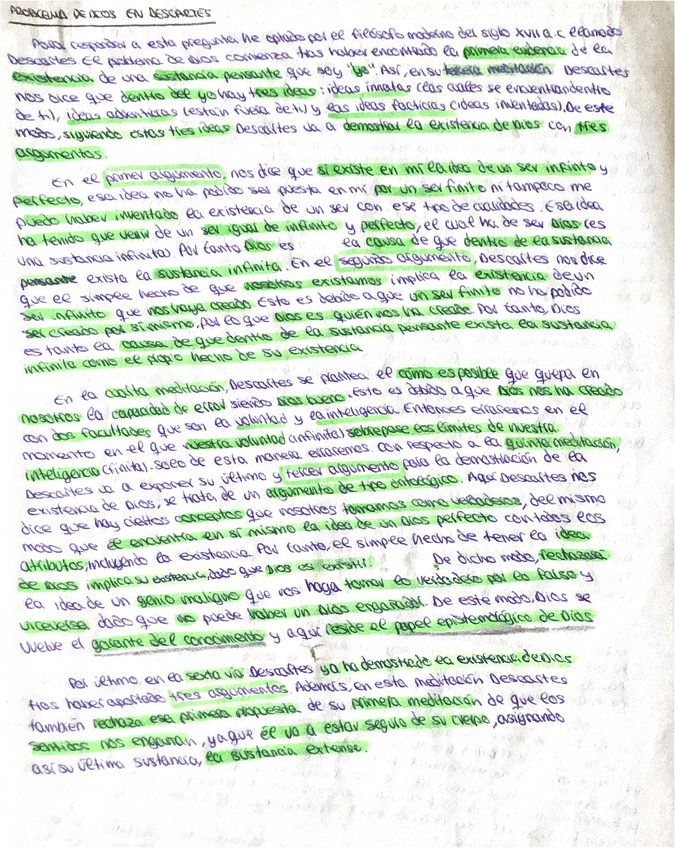 PROBLEMA DE DIOS EN DESCARTES
Para responder a esta pregunta he optado por el filósofo moderno del siglo XVII a.c llamado
Descartes el problema de Dios comienza tras haber encontrado la primera evidencia de la
existencia de una sustancia pensante que soy "yo". Así, en su tercera meditación Descartes
nos dice que dentro del yo hay tres ideas: ideas innatas (las cuales se encuentran dentro
de ti), ideas adventicias (están fuera de ti) y las ideas facticias (ideas inventadas). De este
modo, siguiendo estas tres ideas Descartes va a demostrar la existencia de Dios con tres
argumentos.
En el primer argumento, nos dice que si existe en mi la idea de un ser infinito y
perfecto, esa idea no ha podido ser puesta en mi por un ser finito ni tampoco me
puedo haber inventado la existencia de un ser con ese tipo de cualidades. Esa idea
ha tenido que venir de un ser igual de infinito y perfecto, el cual ha de ser Dios (es
una sustancia infinita). Por tanto Dios es la causa de que dentro de la sustancia
pensante exista la sustancia infinita. En el segundo argumento, Descartes nos dice
que el simple hecho de que nosotros existamos implica la existencia de un
ser infinito que nos haya creado. Esto es debido a que un ser finito no ha podido
ser creado por si mismo. Por lo que Dios es quién nos ha creado. Por tanto, Dios
es tanto la causa de que dentro de la sustancia pensante exista la sustancia
infinita como el propio hecho de su existencia.
En la cuarta meditación, Descartes se plantea el cómo es posible que quepa en
nosotros la capacidad de error siendo Dios bueno. Esto es debido a que Dios nos ha creado
con dos facultades que son la voluntad y la inteligencia. Entonces erraremos en el
momento en el que nuestra voluntad (infinita) sobrepase los límites de nuestra
inteligencia (finita). Solo de esta manera erraremos. Con respecto a la quinta meditación,
Descartes va a exponer su último y tercer argumento para la demostración de la
existencia de Dios, se trata de un argumento de tipo ontológico. Aquí Descartes nos
dice que hay ciertos conceptos que nosotros tomamos como verdaderos, del mismo
modo que él encuentra en sí mismo la idea de un Dios perfecto con todos los
atributos, incluyendo la existencia. Por tanto, el simple hecho de tener la idea
de Dios implica su existencia, dado que Dios es existir. De dicho modo, rechazará
la idea de un genio maligno que nos haga tomar lo verdadero por lo falso y
viceversa dado que no puede haber un Dios engañador. De este modo, Dios se
vuelve el garante del conocimiento y aquí reside el papel epistemológico de Dios
Por último, en la sexta vía Descartes ya ha demostrado la existencia de Dios
tras haber aportado tres argumentos. Además, en esta meditación Descartes
también rechaza esa primera propuesta de su primera meditación de que los
sentidos nos engañan, ya que él va a estar seguro de su cuerpo, asignando
así su última sustancia, la sustancia extensa.